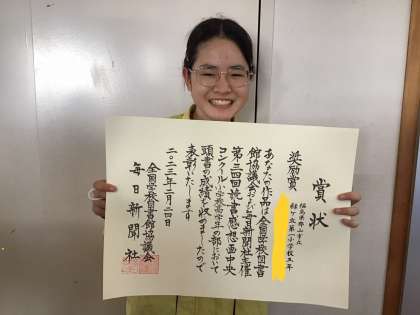 賞状
奨励賞
福島県郡山市立
緑ヶ丘第一小学校五年
あなたの作品は全国学校図書
館協議会および毎日新聞社主催
第三四回読書感想画中央
コンクール小学校高学年の部において
頭書の成績を収めましたので
表彰いたします
二〇二三年二月二四日
全国学校図書館協議会
毎日新聞社